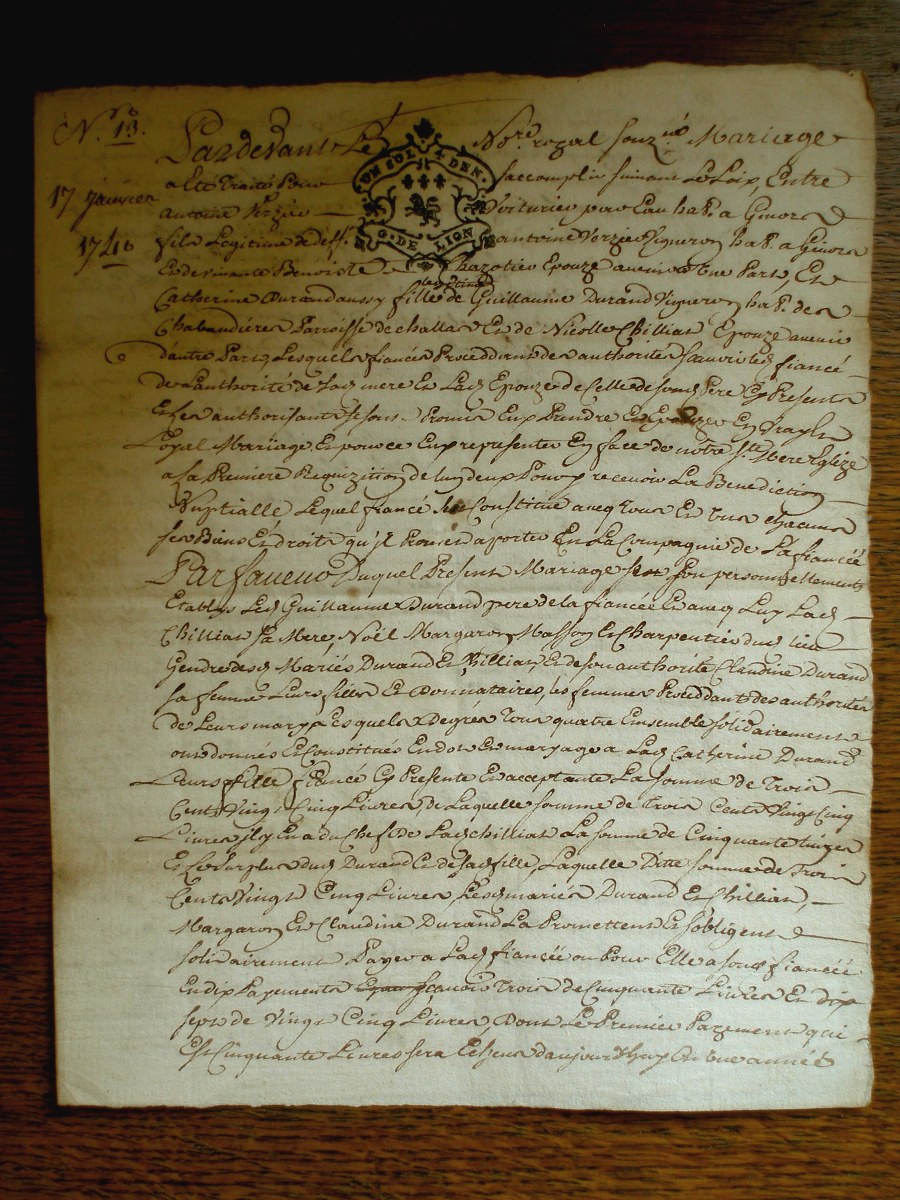 N.º 13.
17 janvier
1740
UN SOL 4 DEN.
G. DE LION
Pardevant Le No.re royal souz.né Mariage
a Eté Traité Pour s'accomplir suivant Les Loix Entre
antoine Verzier Voiturier par Eau hab.t a Givors
fils Legitime a deff. antoine Verzier Vigneron hab.t a Givors
Et de vivante Benoiste Chazotier Epouze avenir d'une Part, Et
Catherine Durand aussy fille legitime de Guillaume Durand Vigneron hab.t des
Chabaudieres Parroisse de challas Et de Nicolle Chillias Epouze avenir
d'autre Part, Lesquels fiancés Proceddants des authorités sçavoir led fiancé
de L'authorité de sad mere Et Lad Epouze de Celle de sond Pere Cy Presents
Et Les authorisants se sont Promis Prendre En vray Et
Loyal Mariage Et pour ce Eux representer En face de notre S.te Mere Eglize
a la Premiere Requizition de Lun deux Pour y recevoir La Benediction
Nuptialle Lequel fiancé se Constitue avec Tous Et Uns chacuns
ses Biens Et droits qu'il Promet aporter En La Compagnie de La fiancée
Par faveur Duquel Present Mariage se sont personnellements
Etablys Led Guillaume Durand pere de la fiancée Et avecq Luy Lad
Chillias sa Mere, Noël Margaron Masson Et Charpentier dud lieu
Gendre desd Mariés Durand Et Chillias Et de son authorité Claudine Durand
sa femme Leurs filles Et Donnataires, les femmes Proceddants des authorités
de Leurs marys Lesquels degrés Tous quatre Ensemble solidairement
ont donnés Et Constitués En dot Et maryage a Lad Catherine Durand
Leurs fille fiancé Cy Presente Et acceptante La somme de Trois
Cents Vingt Cinq Livres, de Laquelle somme de Trois Cents Vingt Cinq
Livres il y En a du Chef de Lad Chillias La somme de Cinquante Livres
Et Le Surplus dud Durand Et de sad fille, Laquelle Ditte somme de Trois
Cents Vingt Cinq Livres, Lesd mariés Durand Et Chillias,
Margaron Et Claudine Durand La Promettent Et s'obligent
solidairement Payer a Lad fiancée ou Pour Elle a sond fiancé
En dix Payements sçavoir Trois de Cinquante Livres Et
sept de Vingt Cinq Livres, Dont Le Premier Payement qui
Est Cinquante Livres sera Echeus d'aujourdhuy En une année